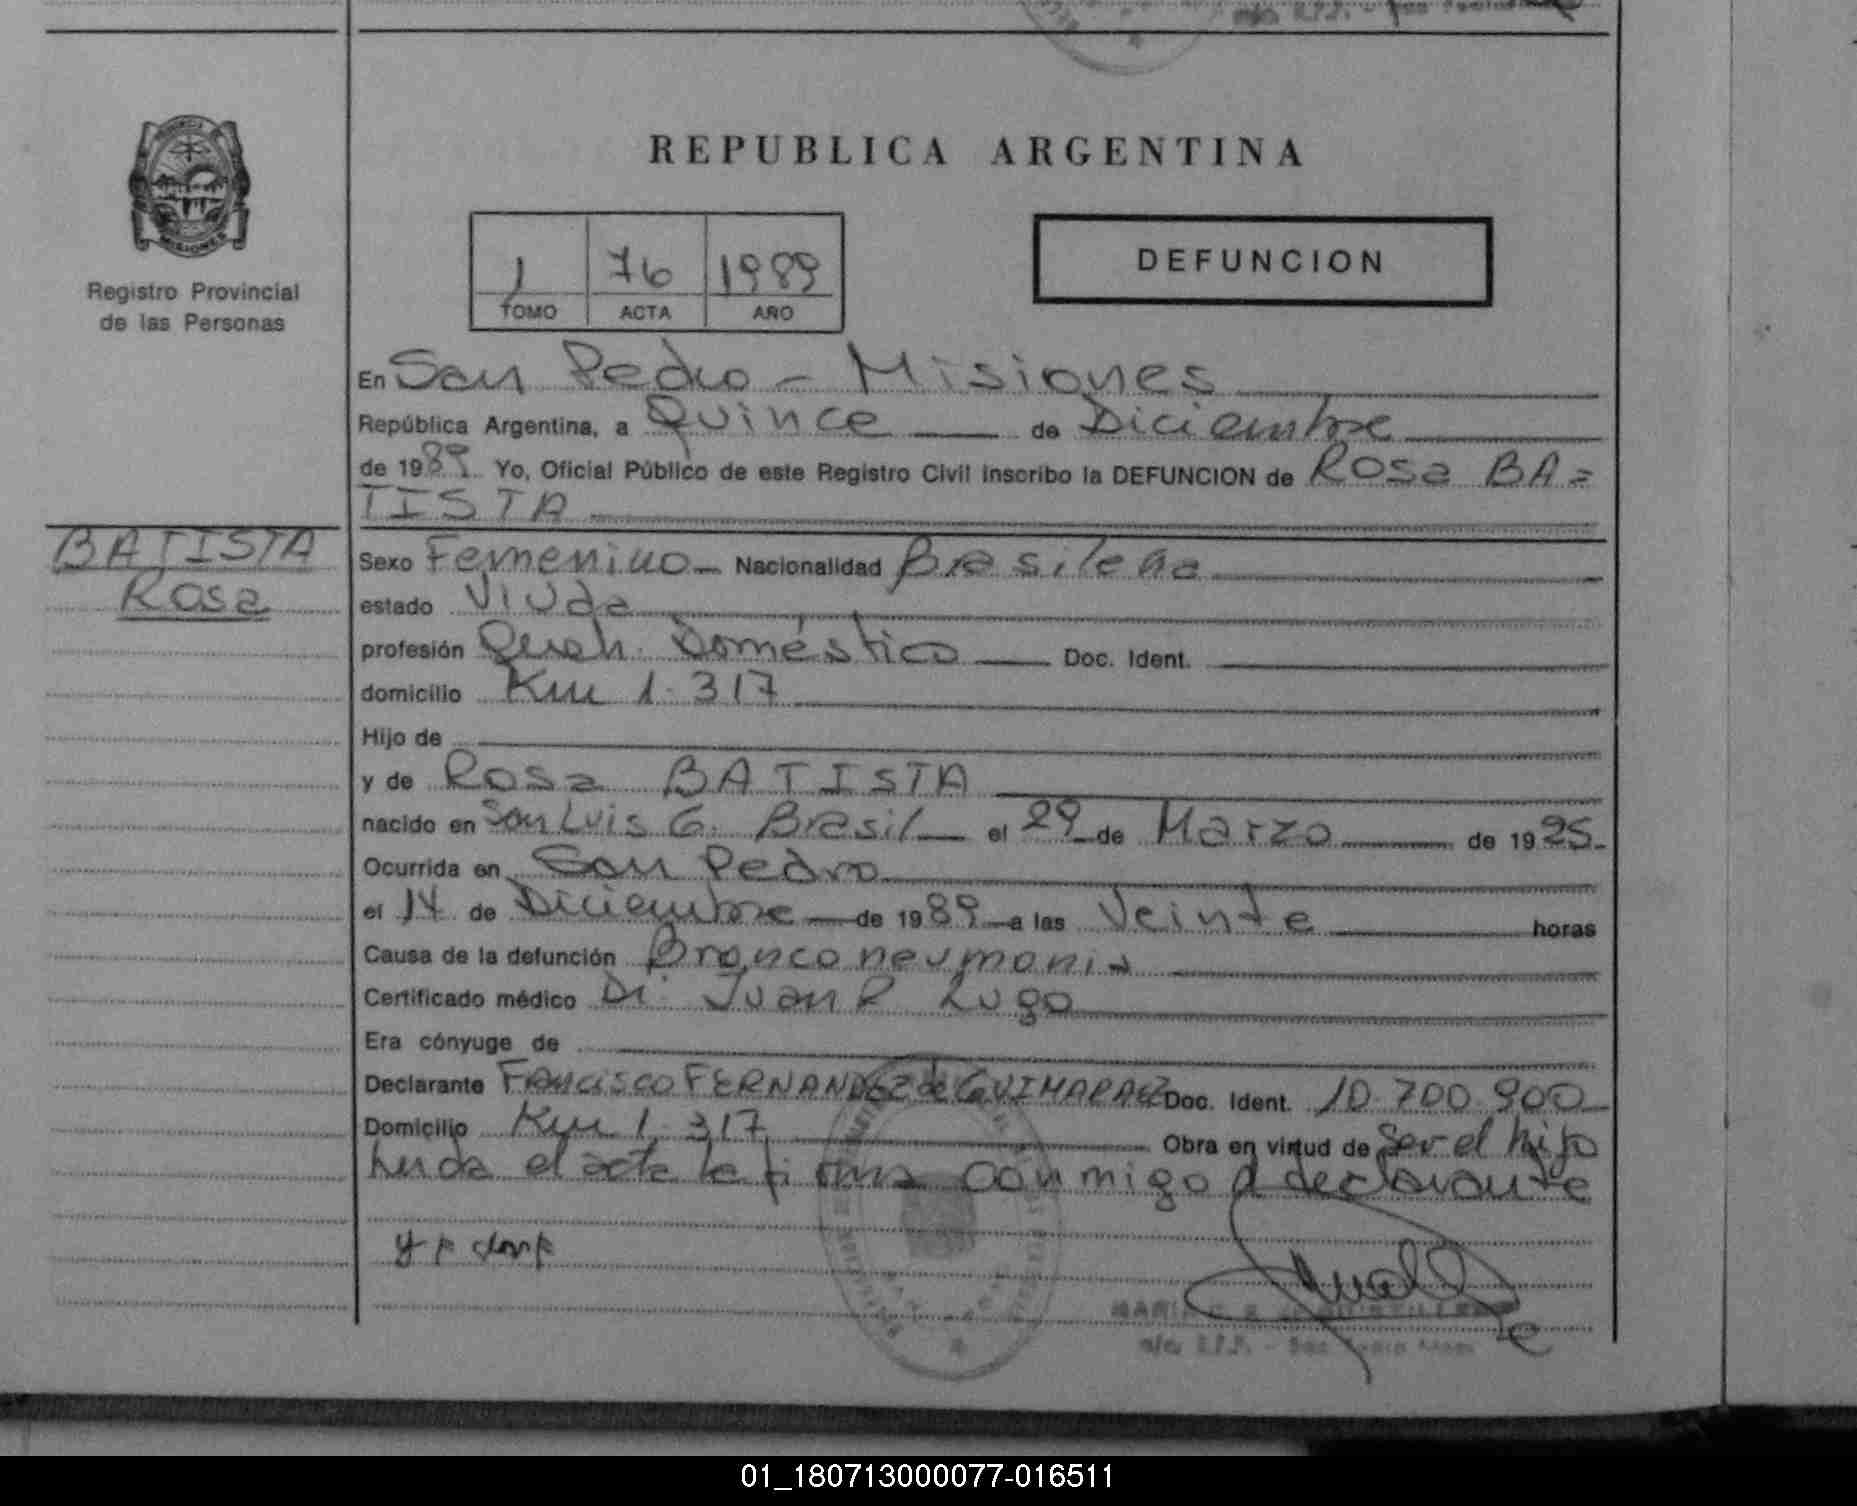 REPUBLICA ARGENTINA
Registro Provincial
de las Personas
MISIONES
1 76 1989
TOMO ACTA AÑO
DEFUNCION
En San Pedro - Misiones
República Argentina, a Quince de Diciembre
de 1989 Yo, Oficial Público de este Registro Civil inscribo la DEFUNCION de Rosa BA=
TISTA
BATISTA
Rosa
Sexo Femenino - Nacionalidad Brasileña
estado Viuda
profesión Queh. Doméstico Doc. Ident.
domicilio Km 1.317
Hijo de
y de Rosa BATISTA
nacido en San Luis G. Brasil el 29 de Marzo de 1925
Ocurrida en San Pedro
el 14 de Diciembre de 1989 a las Veinte horas
Causa de la defunción Bronconeumonia
Certificado médico Dr. Juan R Lugo
Era cónyuge de
Declarante Francisco FERNANDEZ de GUIMARAEZ Doc. Ident. 10.700.900
Domicilio Km 1.317 Obra en virtud de Ser el hijo
leida el acta la firma conmigo el declarante
01_180713000077-016511